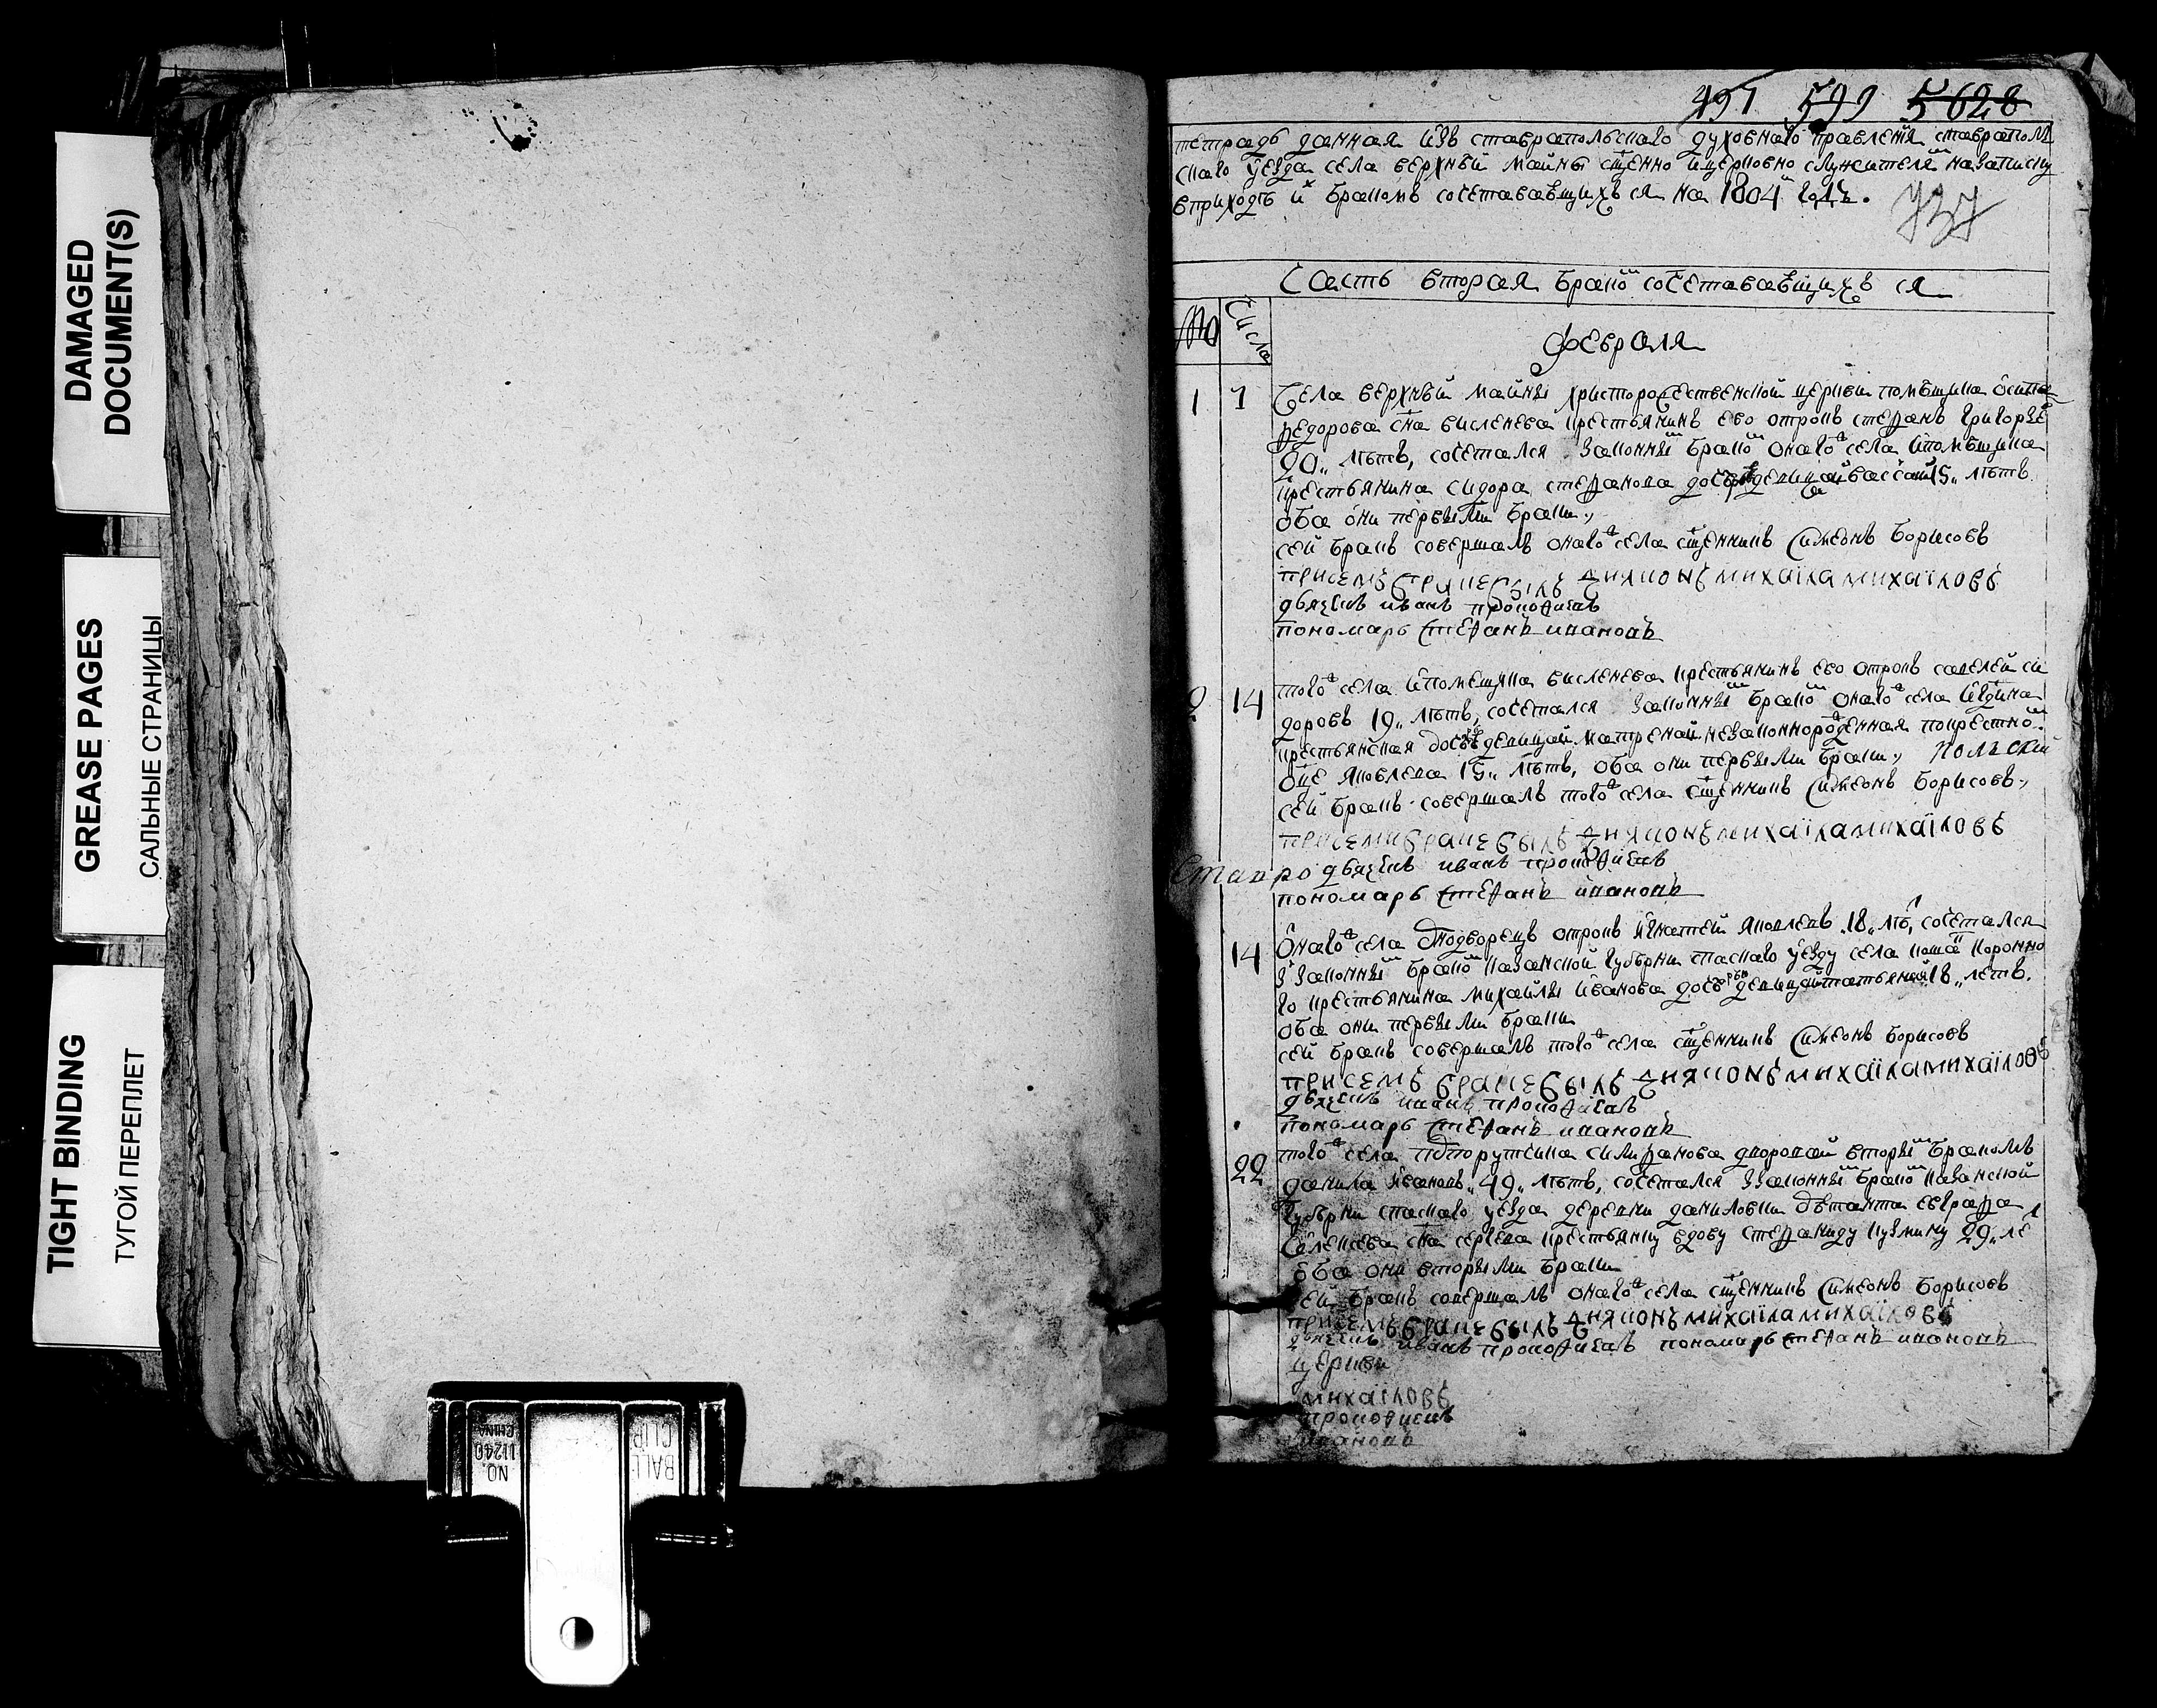 DAMAGED
DOCUMENT(S)
GREASE PAGES
САЛЬНЫЕ СТРАНИЦЫ
TIGHT BINDING
ТУГОЙ ПЕРЕПЛЕТ
NO.
11240
CHINA
BALL
CLIP
491 599 5628
тетрадь данная изъ ставропольскаго духовнаго правления ставрополь
скаго уезда села верхней майны сщенно ицерковно служителямъ назаписку
вприходѣ ихъ бракомъ сочетававшихъ ся на 1804 й годъ.
Часть вторая бракомъ сочетававшихъ ся
числа
февраля
1 7 Села верхней майны христорождественской церкви помѣщика осипа
федорова сна висленева крестьянинъ ево отрокъ стефанъ григорье
20,, лѣтъ, сочетался законнымъ бракомъ онагожъ села ипомѣщика
крестьянина сидора стефанова девицай 15,, лѣтъ
оба они первымъ бракомъ
сей бракъ совершалъ онагожъ села сщенникъ Симеонъ Борисовъ
присемъ браке былъ дияконъ михаила михаиловъ
дьячекъ иванъ прокофиевъ
пономарь стефанъ ивановъ
2 14 тогожъ села ипомещика висленева крестьянинъ ево отрокъ савелей си
доровъ 19,, лѣтъ, сочетался законнымъ бракомъ онагожъ села
крестьянская девицай матреной незаконнорожденная покрестномъ
оце яковлева 15,, лѣтъ, оба они первымъ бракомъ, польски
сей бракъ совершалъ тогожъ села сщенникъ Симеонъ Борисовъ,
присемъ браке былъ дияконъ михаила михаиловъ
Ставро дьячекъ иванъ прокофиевъ
пономарь стефанъ ивановъ
14 Онагожъ села однодворецъ отрокъ игнатей яковлевъ 18,, лѣ, сочетался
законнымъ бракомъ казанской губернии спаскаго уезду села
го крестьянина михайлы иванова девицай татьяной 18,, летъ.
оба они первымъ бракомъ
сей бракъ совершалъ тогожъ села сщенникъ Симеонъ Борисовъ
присемъ браке былъ дияконъ михаила михаиловъ
дьячекъ иванъ прокофиевъ
пономарь стефанъ ивановъ
22 тогожъ села подпорутчика дворовой вторымъ бракомъ
данила ивановъ,, 49,, лѣтъ, сочетался законнымъ бракомъ казанской
губернии спаскаго уезда деревни даниловки
сна крестьянку вдову стефаниду кузмину 29,, ле
оба они вторымъ бракомъ
сей бракъ совершалъ онагожъ села сщенникъ Симеонъ Борисовъ
присемъ браке былъ дияконъ михаила михаиловъ
дьячекъ иванъ прокофиевъ пономарь стефанъ ивановъ
церкви
михаиловъ
прокофиевъ
ивановъ